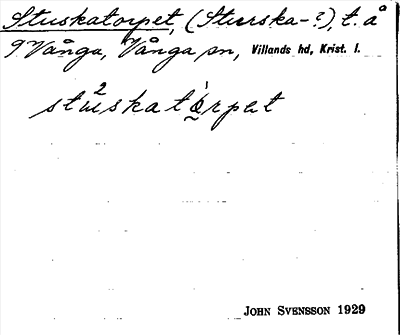 Stuskatorpet, (Sturska-?), t. å
9 Vånga, Vånga sn, Villands hd, Krist. l.
stu²skatò̯rpet
JOHN SVENSSON 1929